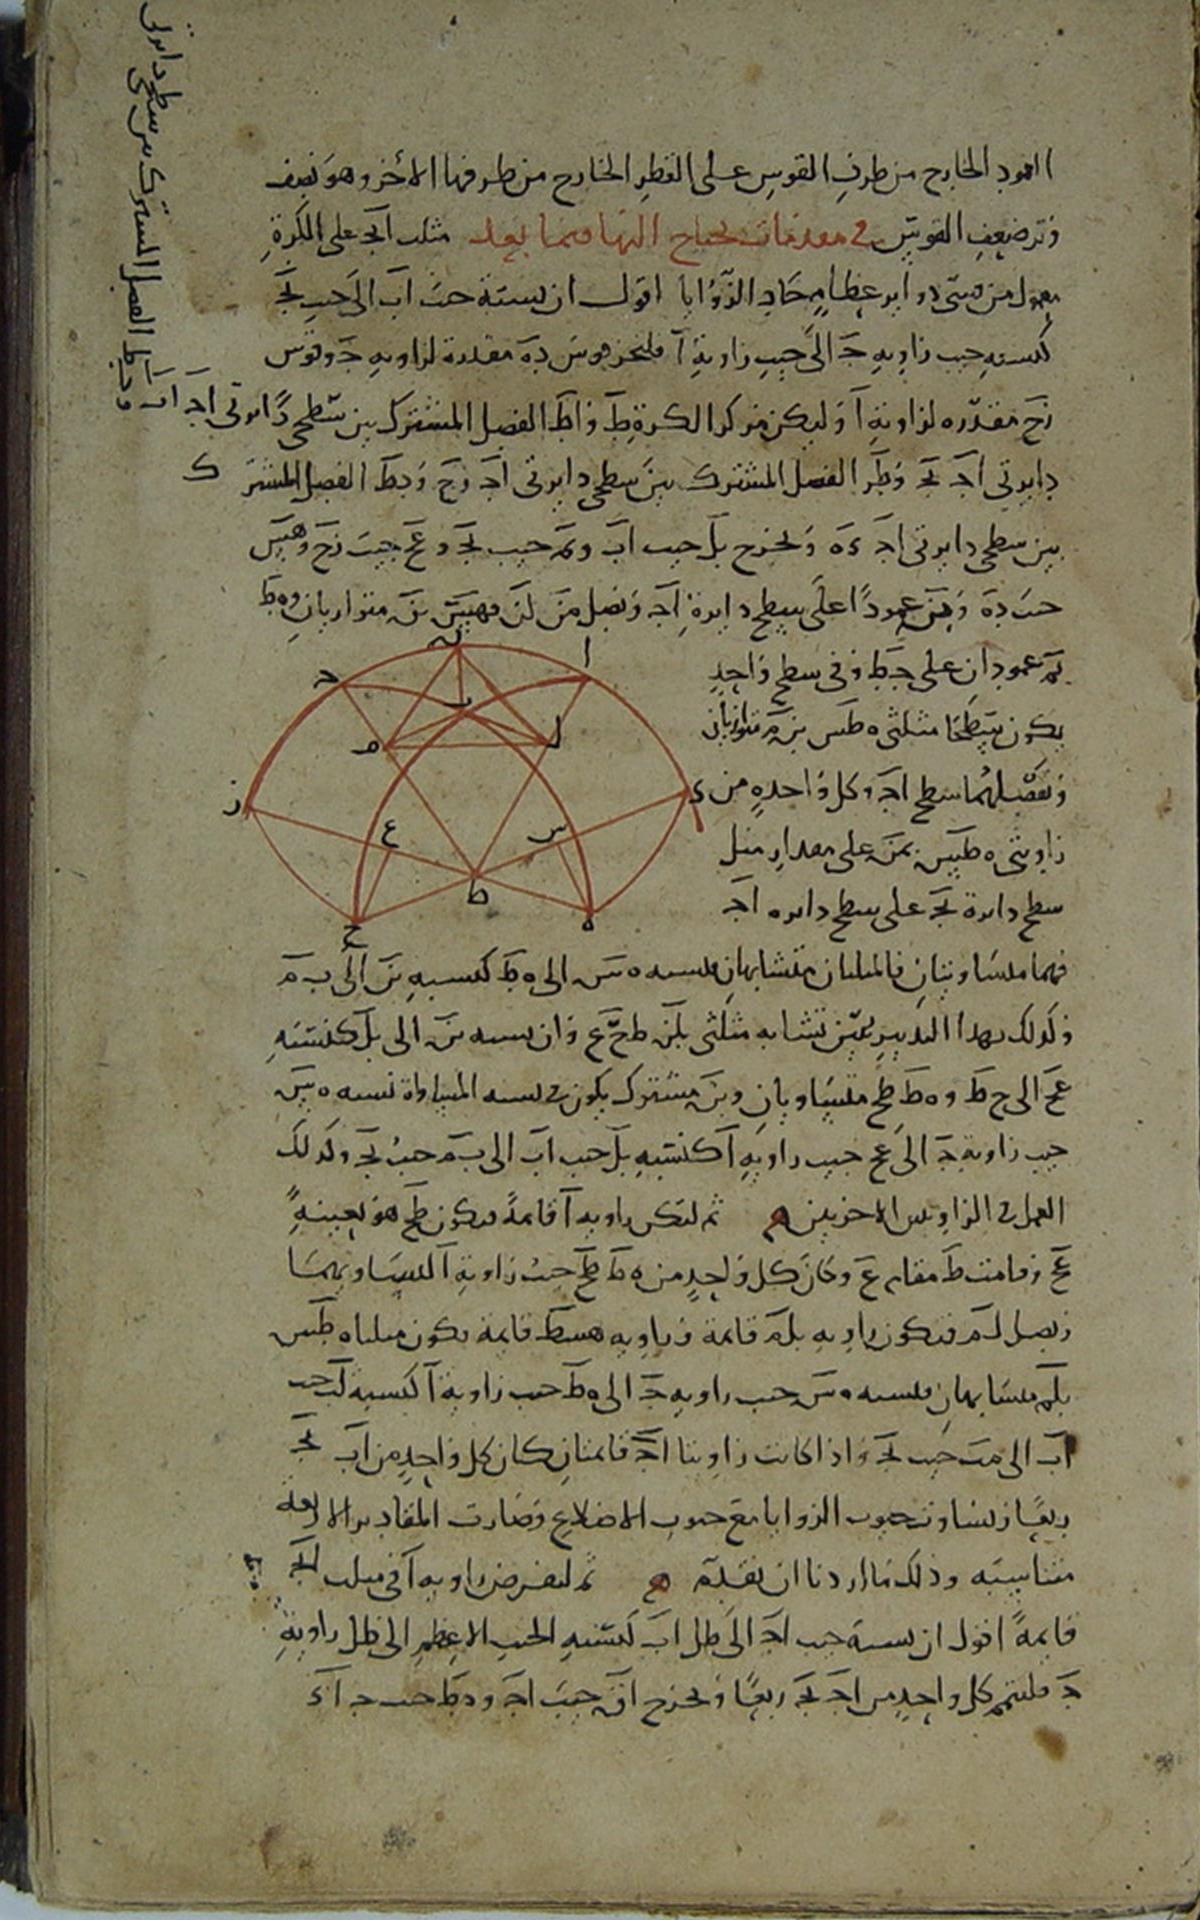 العمود الخارج من طرف القوس على القطر الخارج من طرفها الآخر وهو نصف
وتر ضعف القوس في مقدمات يحتاج اليها فيما بعد مثلث ابج على الكرة
من قسي دوائر عظام حاد الزوايا اقول ان نسبة جيب اب الى جيب بج
كنسبة جيب زاوية ج الى جيب زاوية ا فلنخرج قوس ده مقدرة لزاوية ج وقوس
زح مقدره لزاوية ا وليكن مركز الكرة ط و اط الفصل المشترك بين سطحي دايرتي اج اب
دايرتي اج بج و طز الفصل المشترك بين سطحي دايرتي اج زح و دط الفصل المشترك
بين سطحي دايرتي اج ده ونخرج بل جيب اب وبم جيب بج و حع جيب زح وهس
جيب ده و بن عمودا على سطح دايرة اج ونصل من لن فهس بن متوازيان و ه ط
بم عمودان على جط وفي سطح واحد
يكون سطحا مثلثي ه طس بن م متوازيان
ويفصلهما سطح اج وكل واحده من
زاويتي ه طس بمن على مقدار ميل
سطح دايرة بج على سطح دايره اج
فهما متساويتان فالمثلثان متشابهان فنسبه ه س الى ه ط كنسبة بن الى ب م
وكذلك بهذا التدبير نبين تشابه مثلثي بلن طحع وان نسبه بن الى بل كنسبة
عح الى ح ط و ه ط طح متساويان وبن مشترك يكون في نسبه المساواة نسبه ه س
جيب زاوية ج الى عح جيب زاوية ا كنسبة بل جيب اب الى ب م جيب بج وكذلك
العمل في الزاويتين الاخريين ثم لتكن زاوية ا قايمة فيكون طح هو بعينه
عح وقامت ط مقام ع وكان كل واحد من ه ط طح جيب زاوية ا لتساويهما
ونصل لم فيكون زاوية بلم قايمة وزاوية هسط قايمة يكون مثلثاه طس
بلم متشابهان فنسبه ه س جيب زاوية ج الى ه ط جيب زاوية ا كنسبة لب جيب
اب الى مب جيب بج واذا كانت زاويتا اج قايمتان كان كل واحد من اب بج
ربعا وتساوت جيوب الزوايا مع جيوب الاضلاع وصارت المقادير الاربعة
متناسبة وذلك ما اردنا ان نقدم ثم لنفرض زاوية ا في مثلث ابج
قايمة اقول ان نسبة جيب اج الى ظل اب كنسبة الجيب الاعظم الى ظل زاوية
ج فلنتمم كل واحد من اج بج ربعا ونخرج جيب اج و دط جيب